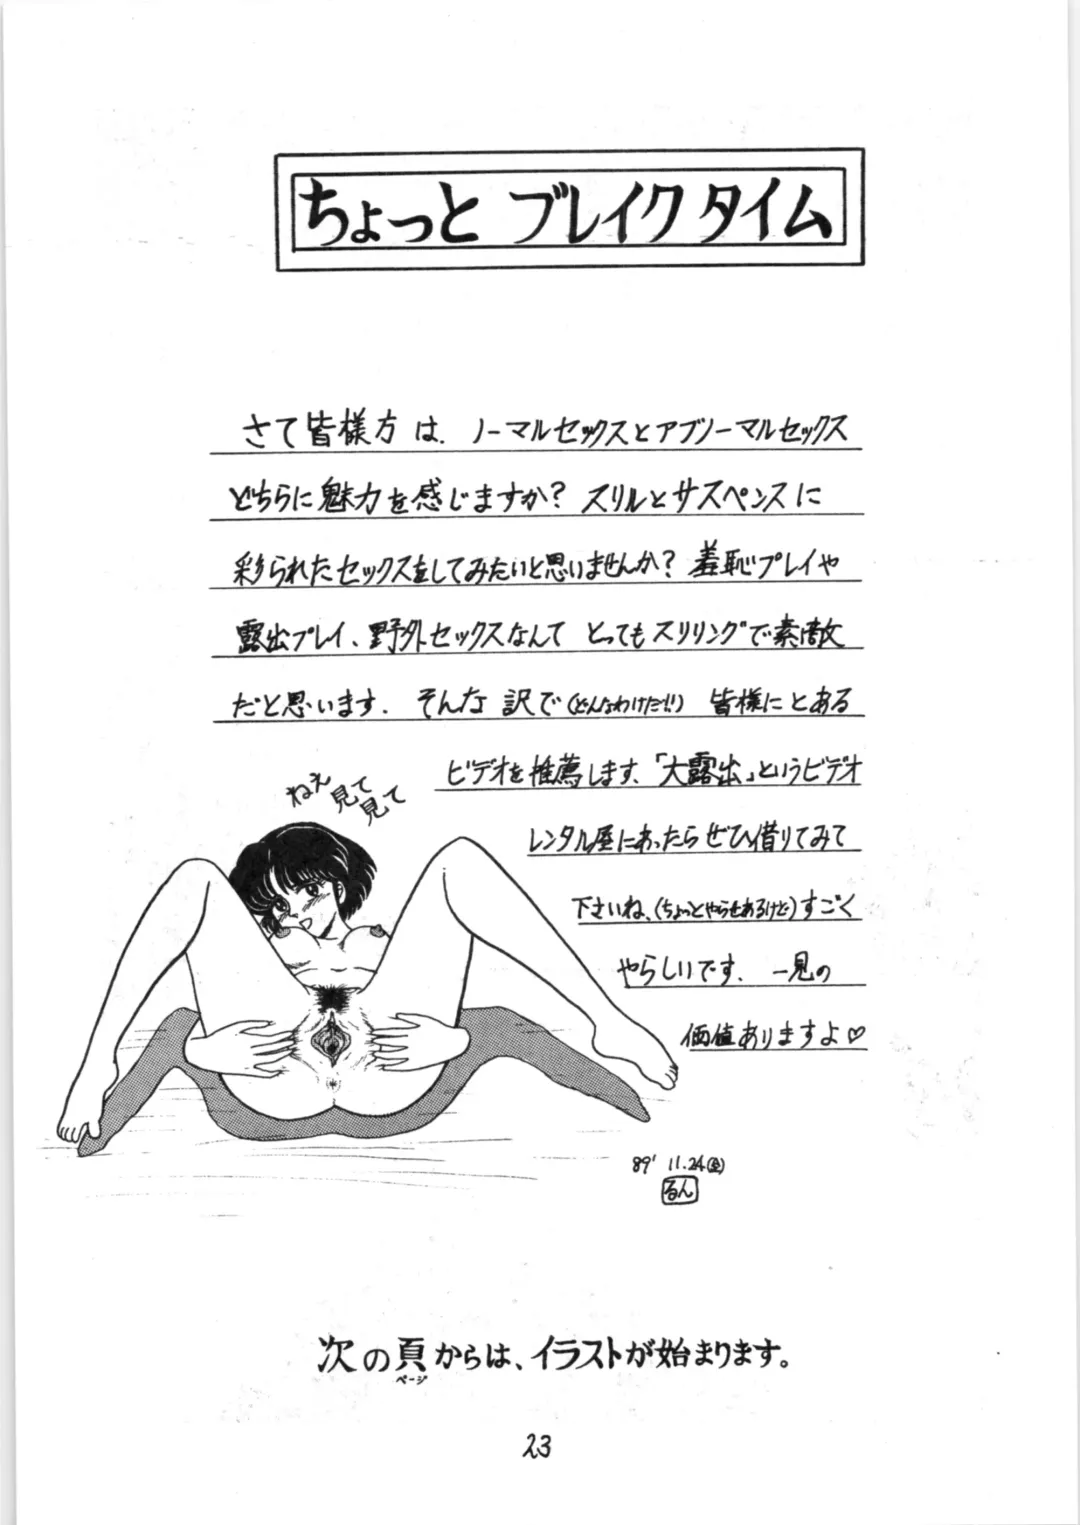 ちょっと ブレイク タイム
さて皆様方は、ノーマルセックスとアブノーマルセックス
どちらに魅力を感じますか？スリルとサスペンスに
彩られたセックスをしてみたいと思いませんか？羞恥プレイや
露出プレイ、野外セックスなんて とってもスリリングで素敵
だと思います。そんな訳で(どんなわけだ!!) 皆様にとある
ビデオを推薦します、「大露出」というビデオ
レンタル屋にあったらぜひ借りてみて
下さいね、(ちょっとやらせあるけど)すごく
やらしいです。一見の
価値ありますよ♡
ねえ
見て
見て
89' 11.24(金)
るん
次の頁からは、イラストが始まります。
ページ
23